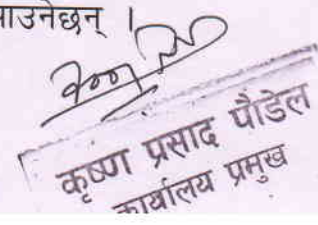 ाउनेछन् ।
कृष्ण प्रसाद पौडेल
कार्यालय प्रमुख